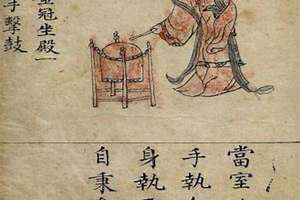 金冠坐殿一
手擊鼓
當室
手執
身執
自秉